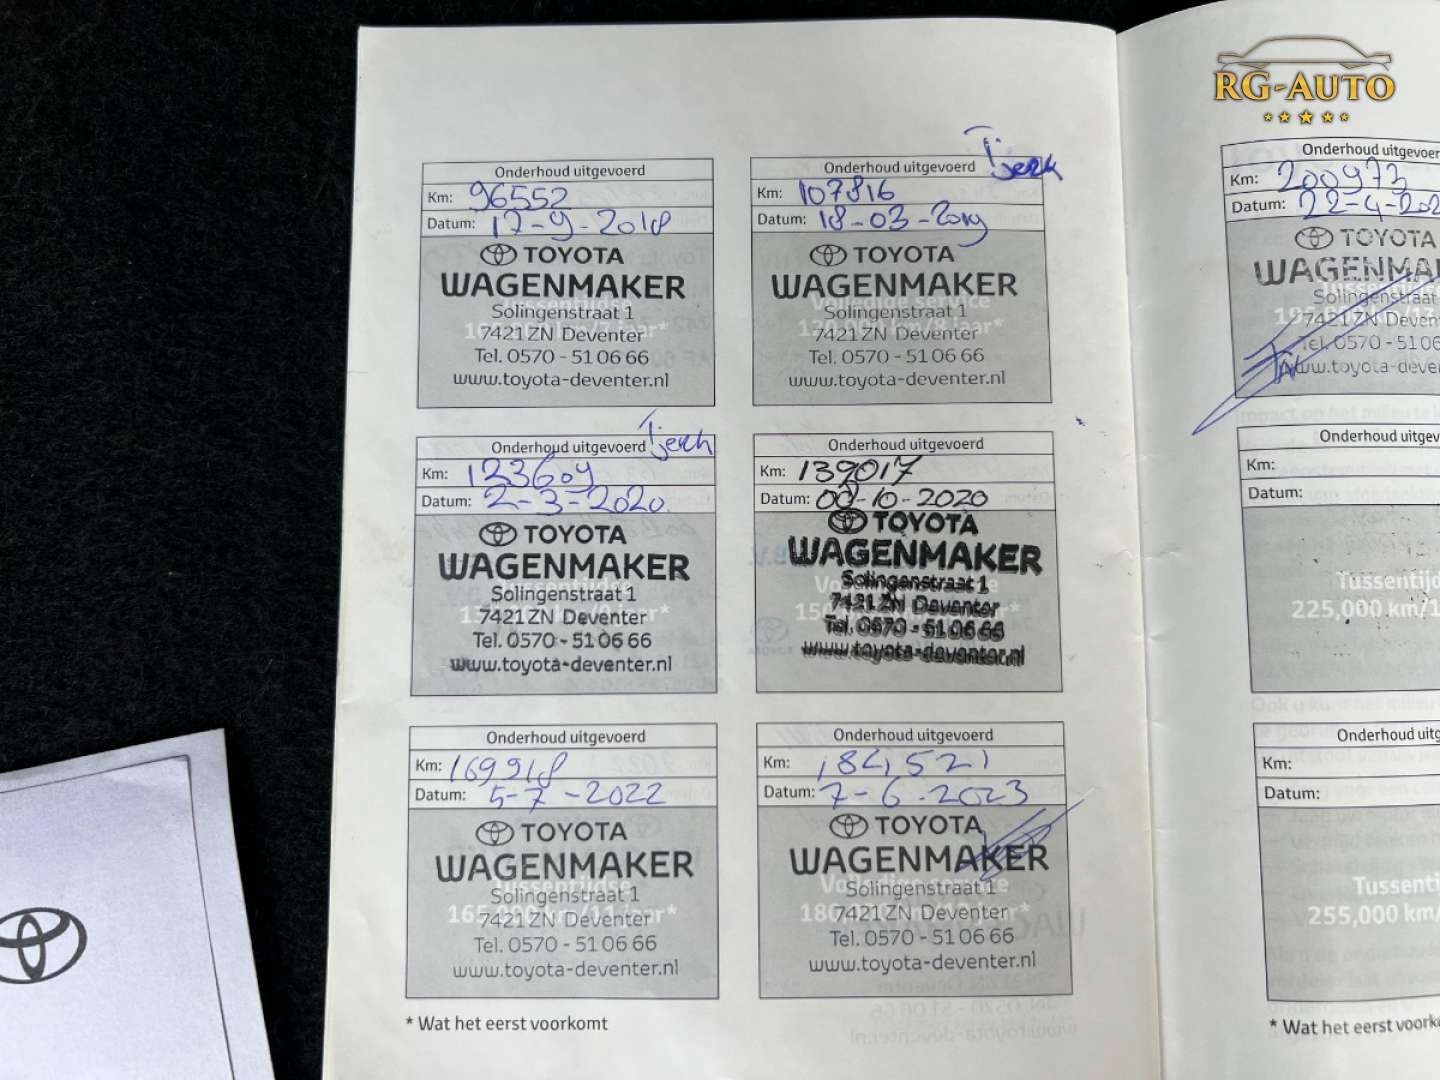 RG-AUTO
Onderhoud uitgevoerd
Km: 96552
Datum: 17-9-2018
TOYOTA
WAGENMAKER
Tussentijdse
Solingenstraat 1
7421ZN Deventer
Tel. 0570 - 51 06 66
www.toyota-deventer.nl
Tjerk
Onderhoud uitgevoerd
Km: 107816
Datum: 18-03-2019
TOYOTA
WAGENMAKER
Volledige service
Solingenstraat 1
7421ZN Deventer
Tel. 0570 - 51 06 66
www.toyota-deventer.nl
Tjerk
Onderhoud uitgevoerd
Km: 123609
Datum: 2-3-2020
TOYOTA
WAGENMAKER
Tussentijdse
Solingenstraat 1
7421ZN Deventer
Tel. 0570 - 51 06 66
www.toyota-deventer.nl
Onderhoud uitgevoerd
Km: 139017
Datum: 00-10-2020
TOYOTA
WAGENMAKER
Solingenstraat 1
7421ZN Deventer
Tel. 0570 - 51 06 66
www.toyota-deventer.nl
Onderhoud uitgevoerd
Km: 169918
Datum: 5-7-2022
TOYOTA
WAGENMAKER
Tussentijdse
Solingenstraat 1
165,000 km/11 jaar*
7421ZN Deventer
Tel. 0570 - 51 06 66
www.toyota-deventer.nl
Onderhoud uitgevoerd
Km: 184521
Datum: 7-6-2023
TOYOTA
WAGENMAKER
Volledige service
Solingenstraat 1
180,000 km/12 jaar*
7421ZN Deventer
Tel. 0570 - 51 06 66
www.toyota-deventer.nl
* Wat het eerst voorkomt
Onderhoud uitgevoer
Km: 200973
Datum: 22-4-202
TOYOTA
WAGENMA
Solingenstraat
7421ZN Deven
Tel. 0570 - 51 06
www.toyota-deve
Onderhoud uitgev
Km:
Datum:
Tussentijd
225,000 km/1
Onderhoud uitg
Km:
Datum:
Tussenti
255,000 km/
* Wat het eerst voork